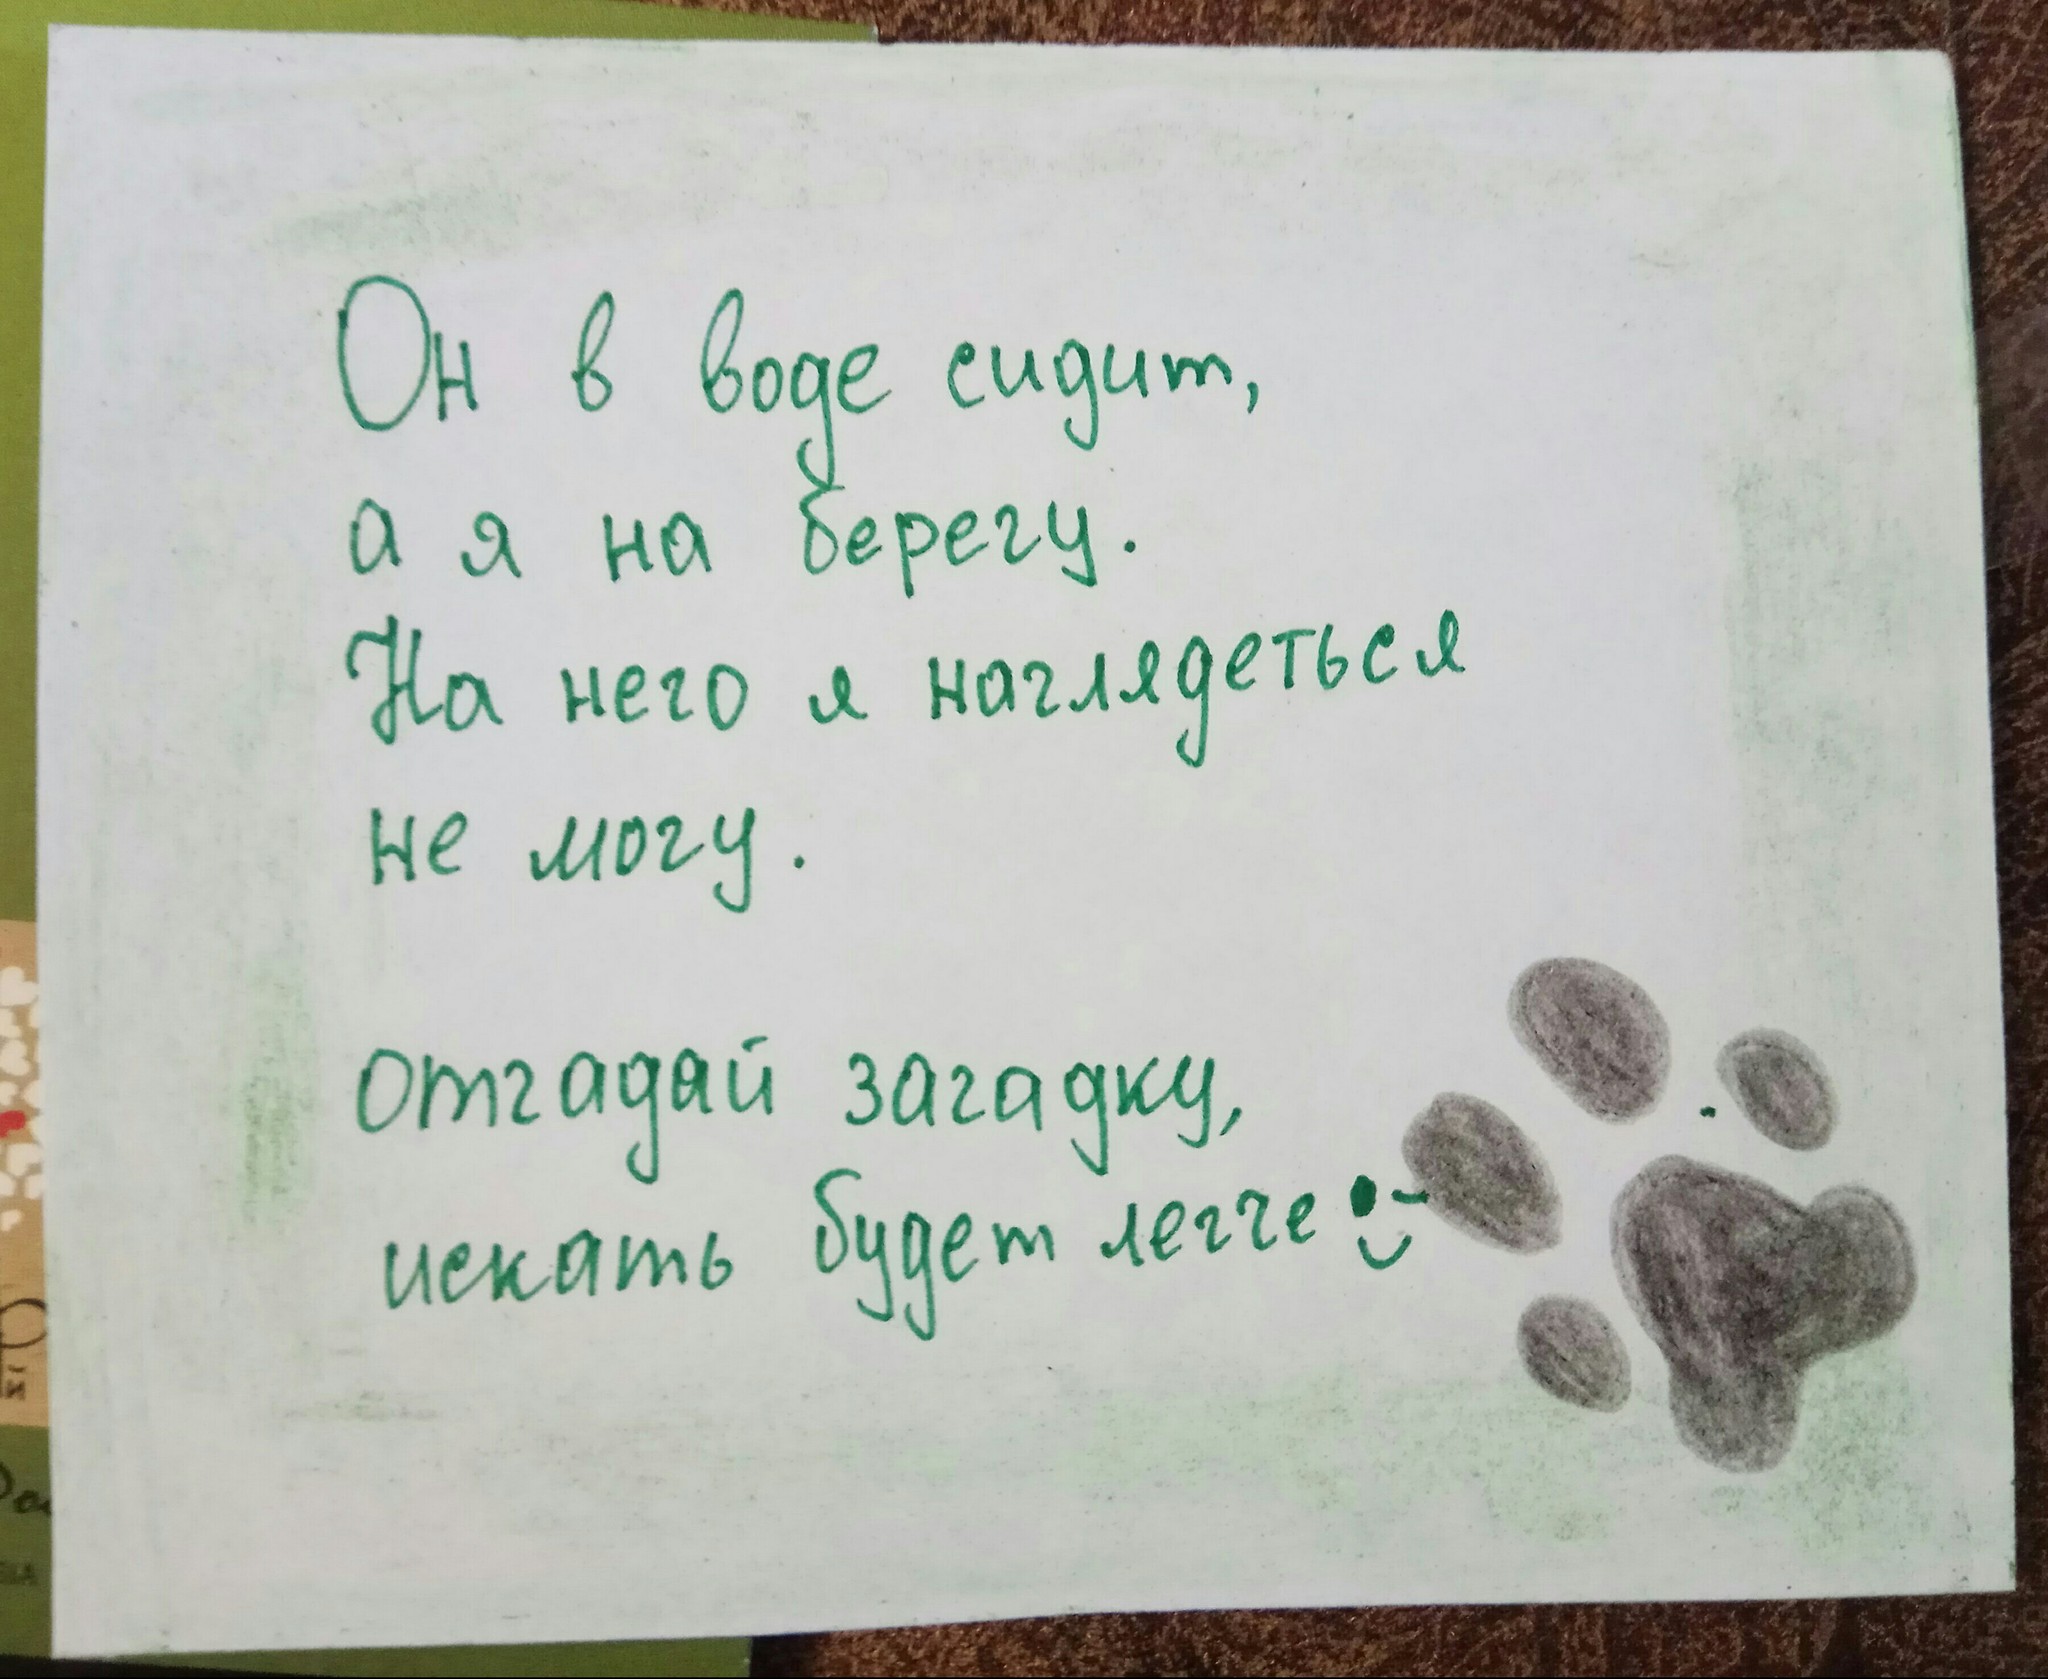 Он в воде сидит,
а я на берегу.
На него я наглядеться
не могу.
отгадай загадку,
искать будет легче